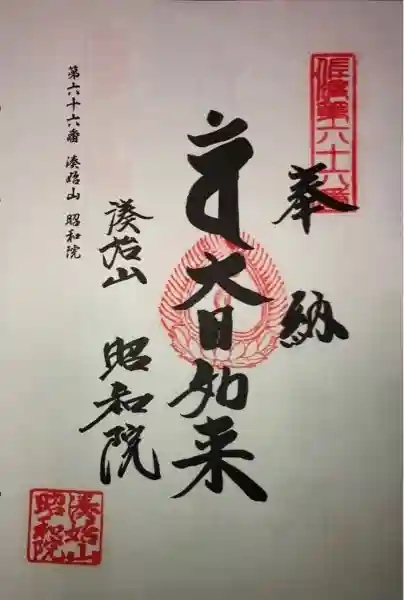 佐渡第六十六番
奉納
大日如来
湊始山 昭和院
第六十六番 湊始山 昭和院
湊始山
昭和院